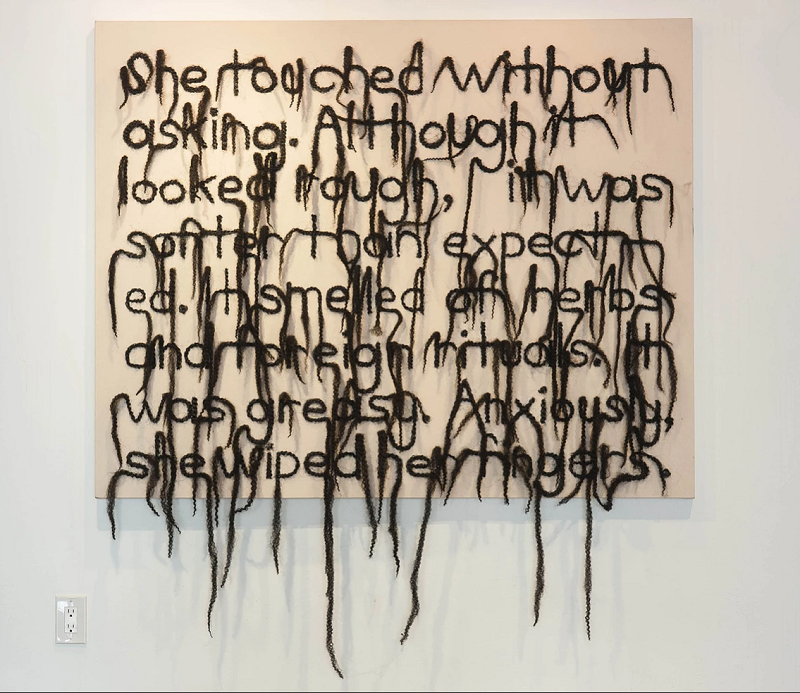 She touched without
asking. Although it
looked rough, it was
softer than expect
ed. It smelled of herbs
and foreign rituals. It
was greasy. Anxiously,
she wiped her fingers.